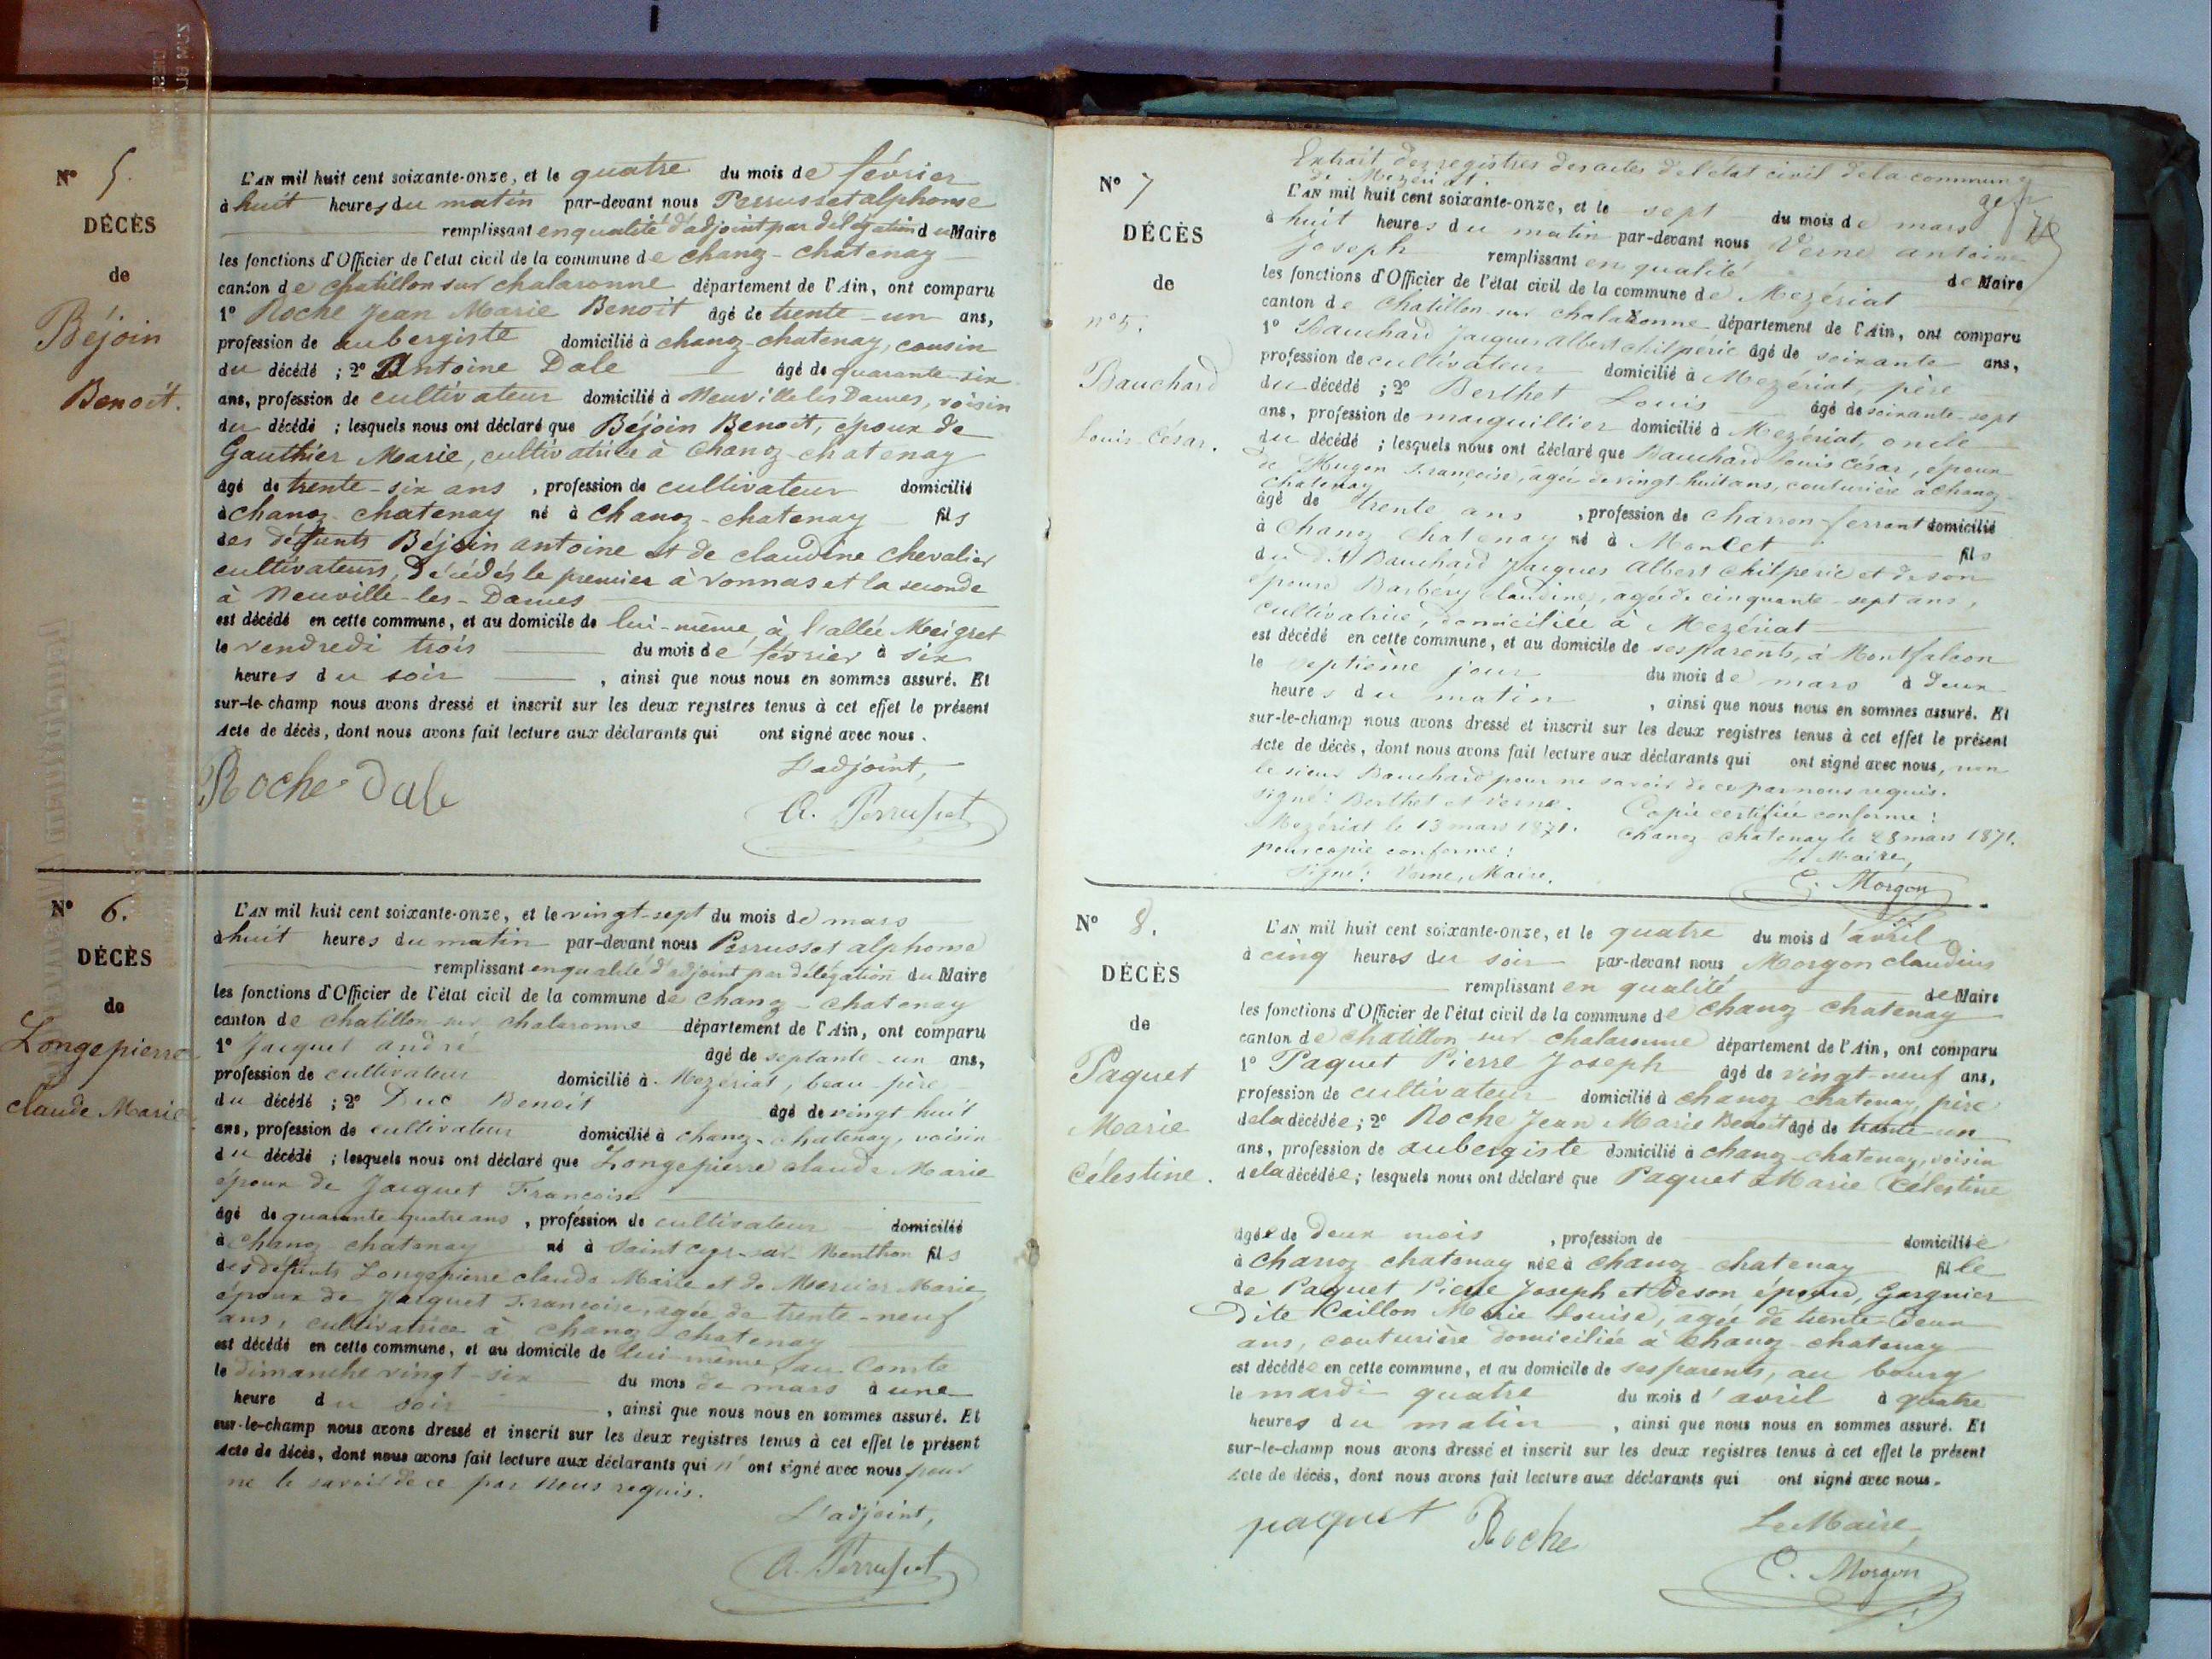 N° 5.
DÉCÈS
de
Béjoin
Benoit.
L'AN mil huit cent soixante-onze, et le quatre du mois de février
à huit heures du matin par-devant nous Perrusset alphonse
remplissant en qualité d'adjoint par délégation du Maire
les fonctions d'Officier de l'état civil de la commune de Chanoz-Chatenay
canton de Chatillon sur chalaronne département de l'Ain, ont comparu
1° Roche Jean Marie Benoit âgé de trente-un ans,
profession de aubergiste domicilié à chanoz-chatenay, cousin
du décédé ; 2° Antoine Dale âgé de quarante-six
ans, profession de cultivateur domicilié à Neuville les Dames, voisin
du décédé ; lesquels nous ont déclaré que Béjoin Benoit, époux de
Gauthier Marie, cultivatrice à Chanoz-chatenay
âgé de trente-six ans , profession de cultivateur domicilié
à chanoz-chatenay né à Chanoz-chatenay fils
des défunts Béjoin antoine et de claudine chevalier
cultivateurs, Décédés le premier à Vonnas et la seconde
à Neuville-les-Dames
est décédé en cette commune, et au domicile de lui-même, à l'allée Meigret
le vendredi trois du mois de février à six
heures du soir , ainsi que nous nous en sommes assuré. Et
sur-le-champ nous avons dressé et inscrit sur les deux registres tenus à cet effet le présent
Acte de décès, dont nous avons fait lecture aux déclarants qui ont signé avec nous.
Roche Dale
L'adjoint,
A. Perrusset
N° 6.
DÉCÈS
de
Longepierre
claude Marie
L'AN mil huit cent soixante-onze, et le vingt-sept du mois de mars
à huit heures du matin par-devant nous Perrusset alphonse
remplissant en qualité d'adjoint par délégation du Maire
les fonctions d'Officier de l'état civil de la commune de Chanoz-Chatenay
canton de chatillon sur chalaronne département de l'Ain, ont comparu
1° Jacquet andré âgé de septante-un ans,
profession de cultivateur domicilié à Mezériat, beau-père
du décédé ; 2° Duc Benoit âgé de vingt huit
ans, profession de cultivateur domicilié à chanoz-chatenay, voisin
du décédé ; lesquels nous ont déclaré que Longepierre claude Marie
époux de Jacquet Françoise
âgé de quarante-quatre ans , profession de cultivateur domicilié
à Chanoz chatenay né à Saint Cyr-sur-Menthon fils
des défunts Longepierre claude Marie et de Mercier Marie,
époux de Jacquet Françoise, agée de trente-neuf
ans, cultivatrice à chanoz chatenay
est décédé en cette commune, et au domicile de lui-même, au Comte
le dimanche vingt-six du mois de mars à une
heure du soir , ainsi que nous nous en sommes assuré. Et
sur-le-champ nous avons dressé et inscrit sur les deux registres tenus à cet effet le présent
Acte de décès, dont nous avons fait lecture aux déclarants qui n'ont signé avec nous pour
ne le savoir de ce par nous requis.
L'adjoint,
A. Perrusset
Extrait des registres des actes de l'état civil de la commune
de Mezériat.
N° 7
DÉCÈS
de
n° 5.
Bauchard
Louis César.
L'AN mil huit cent soixante-onze, et le sept du mois de mars
à huit heures du matin par-devant nous Verne antoine
joseph remplissant en qualité de Maire
les fonctions d'Officier de l'état civil de la commune de Mezériat
canton de Chatillon sur chalaronne département de l'Ain, ont comparu
1° Bauchard Jacques Albert chilpéric âgé de soixante ans,
profession de cultivateur domicilié à Mezériat, père
du décédé ; 2° Berthet Louis âgé de soixante-sept
ans, profession de marguillier domicilié à Mezériat, oncle
du décédé ; lesquels nous ont déclaré que Bauchard Louis César, époux
de Hugon Françoise, agée de vingt-huit ans, couturière à chanoz-
chatenay
âgé de trente ans , profession de charron-ferrant domicilié
à Chanoz Chatenay né à Moncet fils
du dit Bauchard Jacques Albert Chilpéric et de son
épouse Barbéry claudine, agée de cinquante-sept ans,
cultivatrice, domiciliée à Mezériat
est décédé en cette commune, et au domicile de ses parents, à Montfalcon
le septième jour du mois de mars à deux
heures du matin , ainsi que nous nous en sommes assuré. Et
sur-le-champ nous avons dressé et inscrit sur les deux registres tenus à cet effet le présent
Acte de décès, dont nous avons fait lecture aux déclarants qui ont signé avec nous, non
le sieur Bauchard pour ne savoir de ce par nous requis.
Signé : Berthet et Verne. Copie certifiée conforme :
Mezériat le 13 mars 1871. Chanoz chatenay le 28 mars 1871.
pour copie conforme : Le Maire,
Signé : Verne, Maire. C. Morgon
N° 8.
DÉCÈS
de
Paquet
Marie
Célestine.
L'AN mil huit cent soixante-onze, et le quatre du mois d'avril
à cinq heures du soir par-devant nous Morgon claudius
remplissant en qualité de Maire
les fonctions d'Officier de l'état civil de la commune de Chanoz-Chatenay
canton de chatillon sur chalaronne département de l'Ain, ont comparu
1° Paquet Pierre Joseph âgé de vingt-neuf ans,
profession de cultivateur domicilié à chanoz chatenay, père
de la décédée ; 2° Roche Jean Marie Benoit âgé de trente-un
ans, profession de aubergiste domicilié à chanoz-chatenay, voisin
de la décédée ; lesquels nous ont déclaré que Paquet Marie Célestine
âgée de deux mois , profession de domiciliée
à Chanoz chatenay née à chanoz-chatenay fille
de Paquet Pierre Joseph et de son épouse, Gorgnier
Dite Caillon Marie Louise, agée de trente-deux
ans, couturière domiciliée à Chanoz-chatenay
est décédée en cette commune, et au domicile de ses parents, au bourg
le mardi quatre du mois d'avril à quatre
heures du matin , ainsi que nous nous en sommes assuré. Et
sur-le-champ nous avons dressé et inscrit sur les deux registres tenus à cet effet le présent
Acte de décès, dont nous avons fait lecture aux déclarants qui ont signé avec nous.
paquet Roche
Le Maire,
C. Morgon